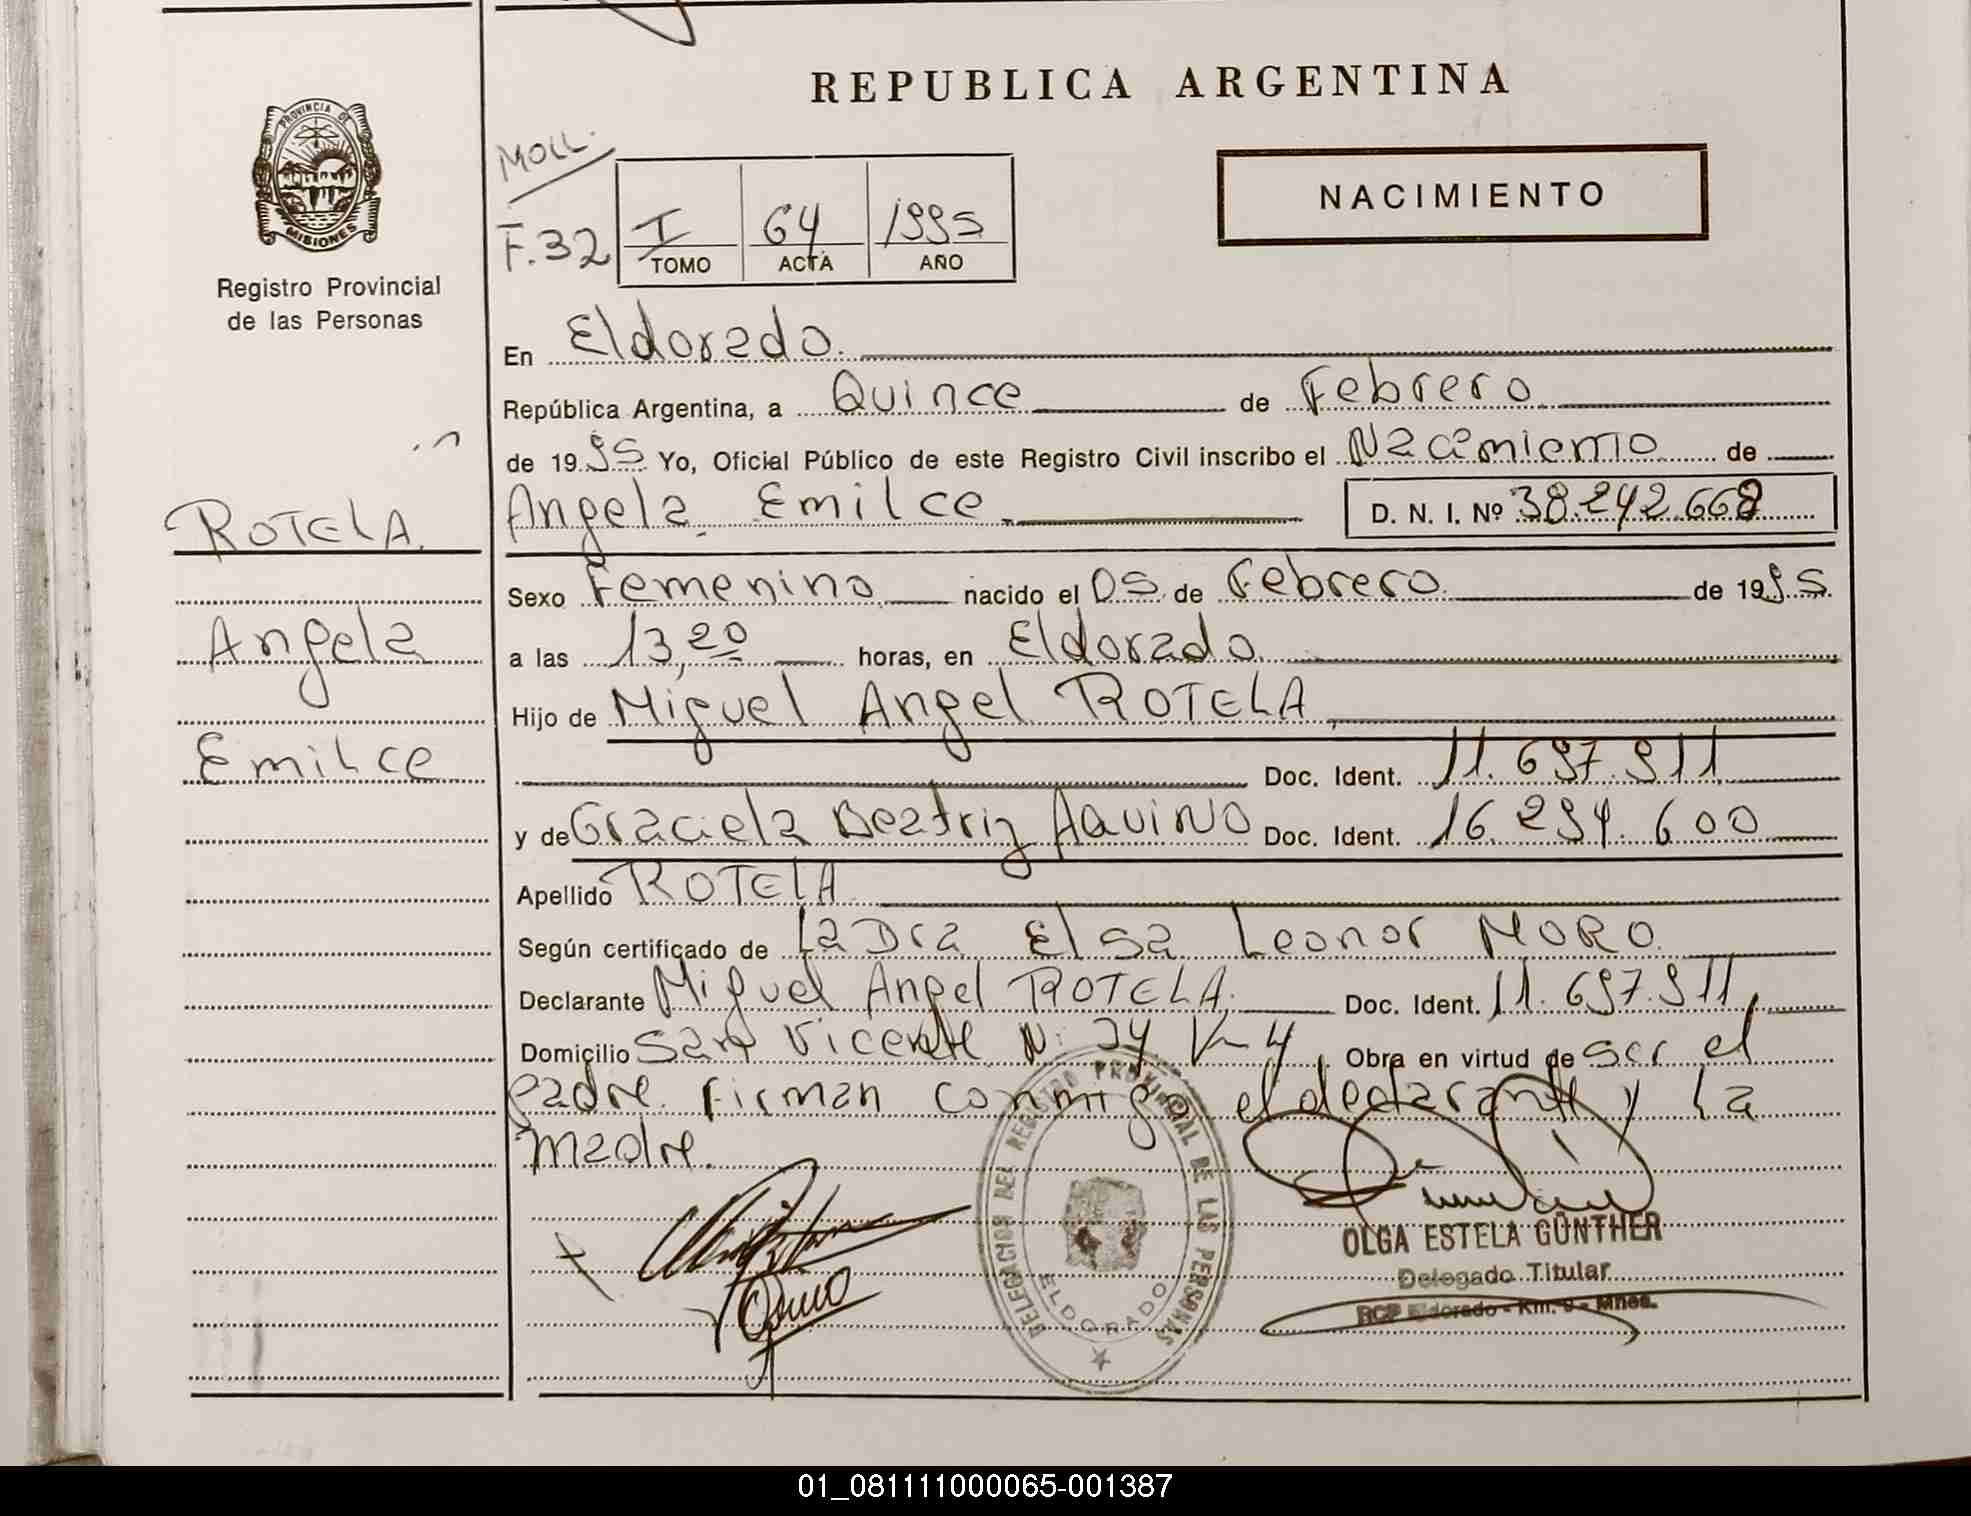 REPUBLICA ARGENTINA
PROVINCIA DE
MISIONES
Registro Provincial
de las Personas
MOLL.
F.32
I 64 1995
TOMO ACTA AÑO
NACIMIENTO
En Eldorado.
República Argentina, a Quince de Febrero
de 1995 Yo, Oficial Público de este Registro Civil inscribo el Nacimiento de
ROTELA.
Angela Emilce D. N. I. Nº 38.242.668
Sexo Femenino nacido el 05 de Febrero de 1995
Angela
a las 13,20 horas, en Eldorado.
Hijo de Miguel Angel ROTELA
Emilce
Doc. Ident. 11.697.911
y de Graciela Beatriz Aquino Doc. Ident. 16.294.600
Apellido ROTELA
Según certificado de La Dra Elsa Leonor MORO.
Declarante Miguel Angel ROTELA. Doc. Ident. 11.697.911
Domicilio San Vicente N: 4 Obra en virtud de ser el
padre. Firman conmigo el declarante y La
madre.
DELEGACION DEL REGISTRO PROVINCIAL DE LAS PERSONAS
ELDORADO
OLGA ESTELA GÜNTHER
Delegado Titular
RCP Eldorado - Km. 9 - Mnes.
01_081111000065-001387